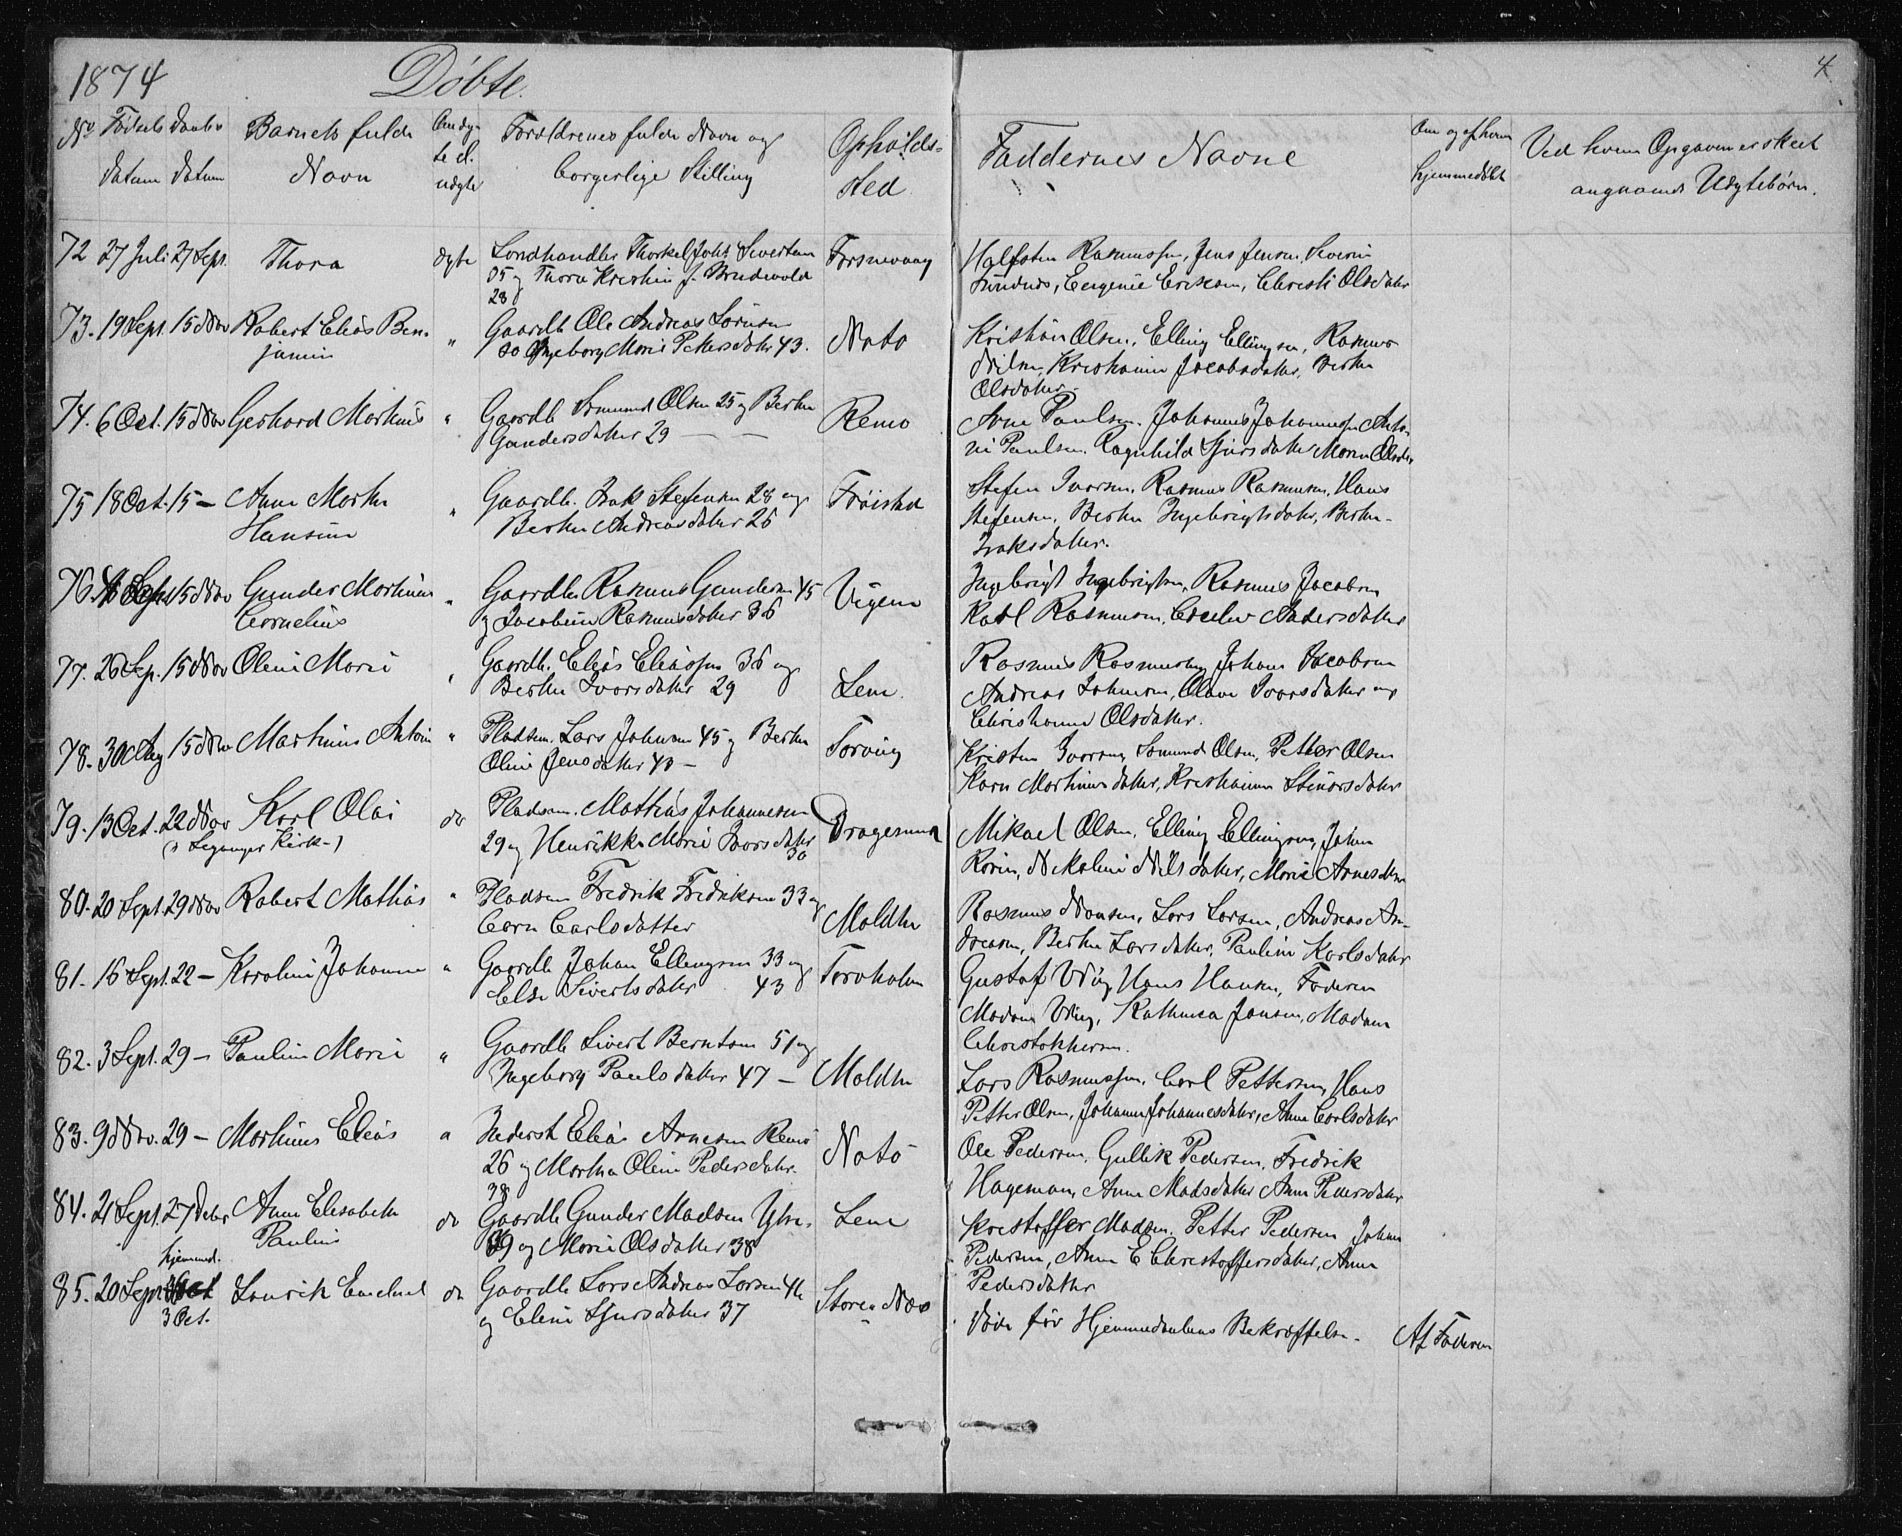 1874 Døbte. 4
No Fødsels Daabs Barnets fulde Ægte Forældrenes fulde Navn og Opholds= Faddernes Navne Om og af hvem Ved hvem Opgaven er skeet
datum datum Navn el. uægte borgerlige Stilling sted hjemmedøbt angaaende Uægtebørn.
72 27 Juli 27 Sept. Thora ægte Landhandler Thorkel Joh. Sivertsen
35 og Thora Kristine f. 28
Forsnevaag
Halfsten Rasmussen, Jens Jensen, Severin
Eugenie Ericksen, Christi Olsdatter
73. 19 Sept. 15 Nov Robert Elias Ben-
jamin
" Gaardb. Ole Andreas Larsen
30 Ingeborg Marie Pettersdatter 43.
Nato
Kristian Olsen, Elling Ellingsen, Rasmus
Nilsen, Kristianne Jacobsdatter, Berthe
Olsdatter.
74. 6 Oct. 15 Nov Gerhard Martinus
" Gaardb. Samund Olsen 25 og Berthe
Gundersdatter 29 — —
Remo
Arne Paulsen. Johannes Johannessen, Anto-
ni Paulsen, Ragnhild Sjursdatter Maren Olsdr
75 18 Oct. 15 — Anne Marthe
Hansine
" Gaardb. Isak Stefensen 28 og
Berthe Andreasdatter 26
Frøistad
Stefen Ivarsen, Rasmus Rasmusen, Hans
Stefensen, Berthe Ingebrigtsdatr, Berthe
Isaksdatter.
76. Sept 15 Nov Gunder Martinus
Cornelius
" Gaardb. Rasmus Gundersen 45
og Jacobine Rasmusdatter 36
Vigene
Ingebrigt Ingebrigtsen, Rasmus Jacobsen
Karl Rasmusen, Andersdatter
77. 26 Sep. 15 Nov Oline Marie
" Gaardb. Elias Eliassen 36 og
Berthe Ivarsdatter 29
Leine.
Rasmus Rasmussen, Johan Jacobsen
Andreas Johnsen, Olave Ivarsdatter og
Christianne Olsdatter.
78. 30 Aug 15 Nov Martinus Antoni
" Pladsm. Lars Johnsen 45 og Berthe
Oline Jensdatter 40 —
Torvig
Kristen Ivarsen, Samund Olsen, Petter Olsen
Karn Martinusdatter, Kristianne Stenarsdatr
79. 13 Oct. 22 Nov Karl Olai
(i Leganger Kirk-)
do Pladsm. Mathias Johannesen
29 og Henrikke Marie Ivarsdatter
30
Dragesund
Mikael Olsen, Elling Ellingsen, Johan
Nikoline Nilsdatter, Marie Arnesdtr
80. 20 Sept. 29 Nov Robert Mathias
" Pladsm. Fredrik Fredriksen 33 og
Carn Carlsdatter
Moldtu
Rasmus Monsen, Lars Larsen, Andreas An-
dreasen, Berthe Larsdatter, Pauline Karlsdatr
81. 16 Sept. 22 — Karoline Johanne
" Gaardb Johan Ellingsen 33 og
Else Sivertsdatter 43
Torvholm
Gustaf Wiig, Hans Hansen, Faderen
Madam Wiig, Kathinca Jansen, Madam
82. 3 Sept. 29 — Pauline Marie
" Gaardb Sivert Berntsen 51 og
Ingeborg Paulsdatter 47 —
Moldtu
Lars Rasmussen, Carl Pettersen, Hans
Petter Olsen, Johanne Johannesdatter, Anne Carlsdatter
83. 9 Nov. 29 — Martinus Elias
" Inderst Elias Arnesen Remø
26 og Martha Oline Pedersdatr.
38
Natø
Ole Pedersen, Gullik Pedersen, Fredrik
Hageman, Anne Madsdatter Anne Pedersdatter
84. 21 Sept. 27 Debr Anne Elisabeth
Pauline
do Gaardb Gunder Madsen Ytre-
39 og Marie Olsdatter 38
Leine
Kristoffer Madsen, Petter Pedersen Johan
Pedersen, Anne E Christoffersdatter, Anne
Pedersdatter
85. 20 Sept hjemmed. 3 Oct. Laurik Emelius
do Gaardb Lars Andreas Larsen 46
og Eline Sjursdatter 37
Store Næs
Døde før Hjemmedaabens Bekræftelse. Af Faderen